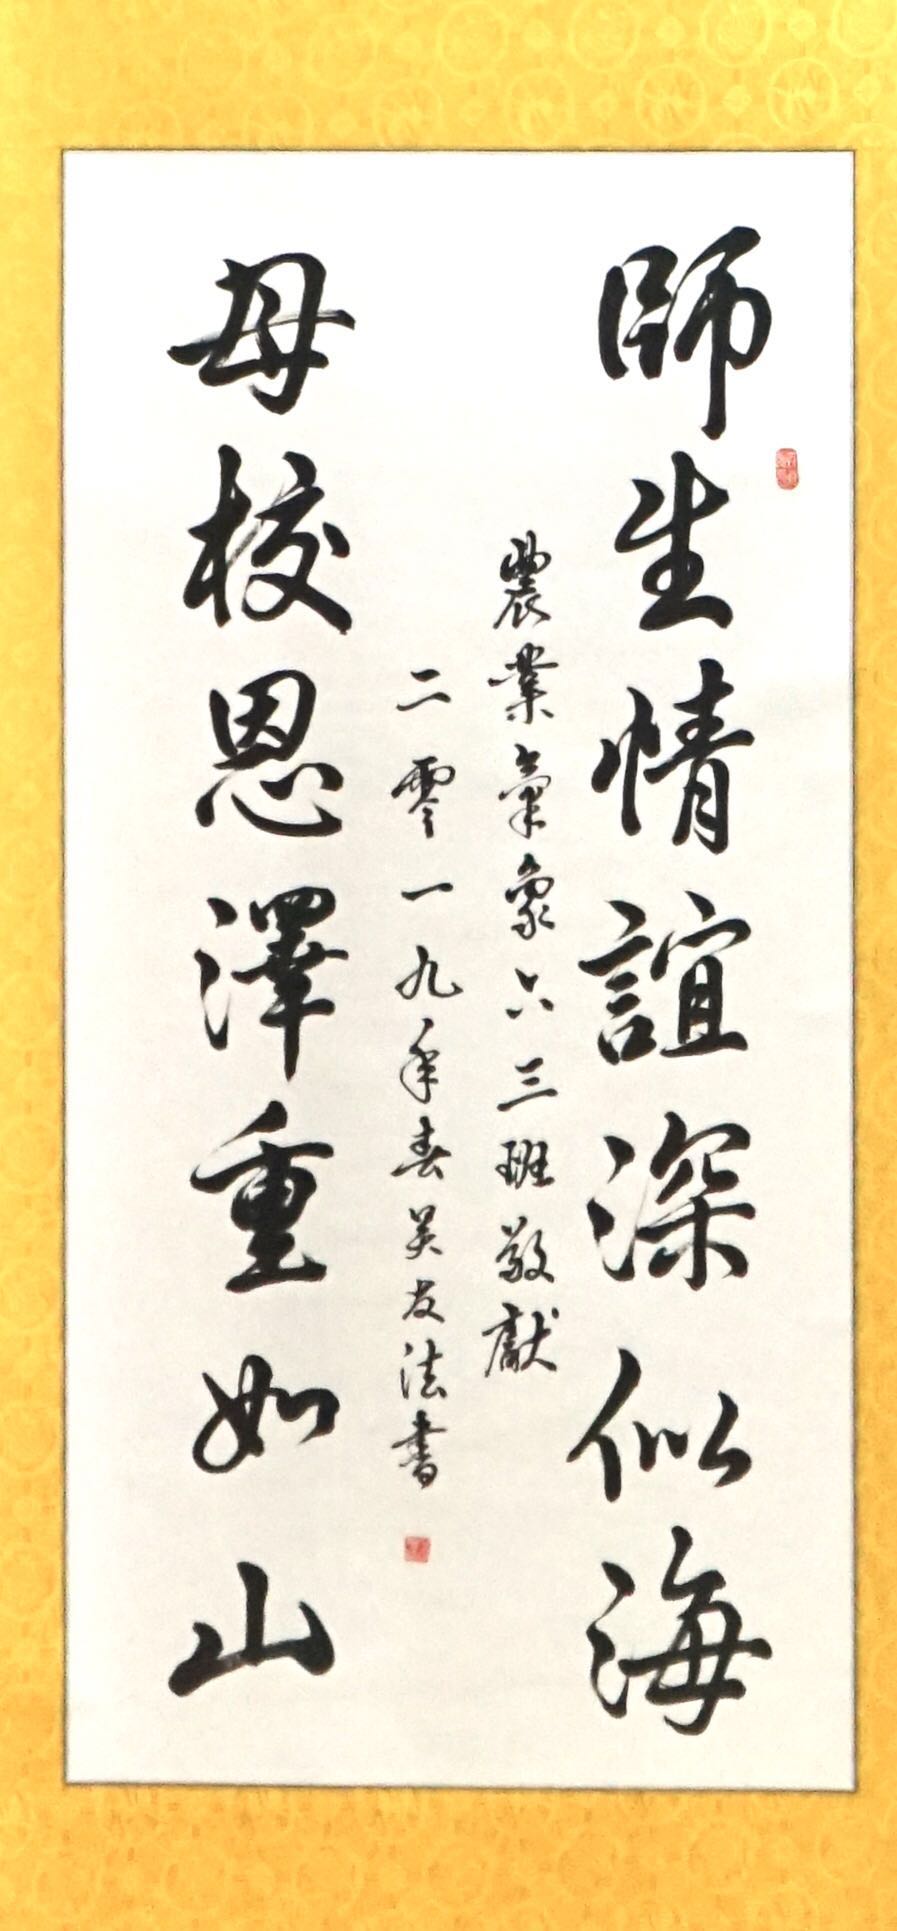 師生情誼深似海
農業氣象六三班敬獻
二零一九年春吴友法書
母校恩澤重如山